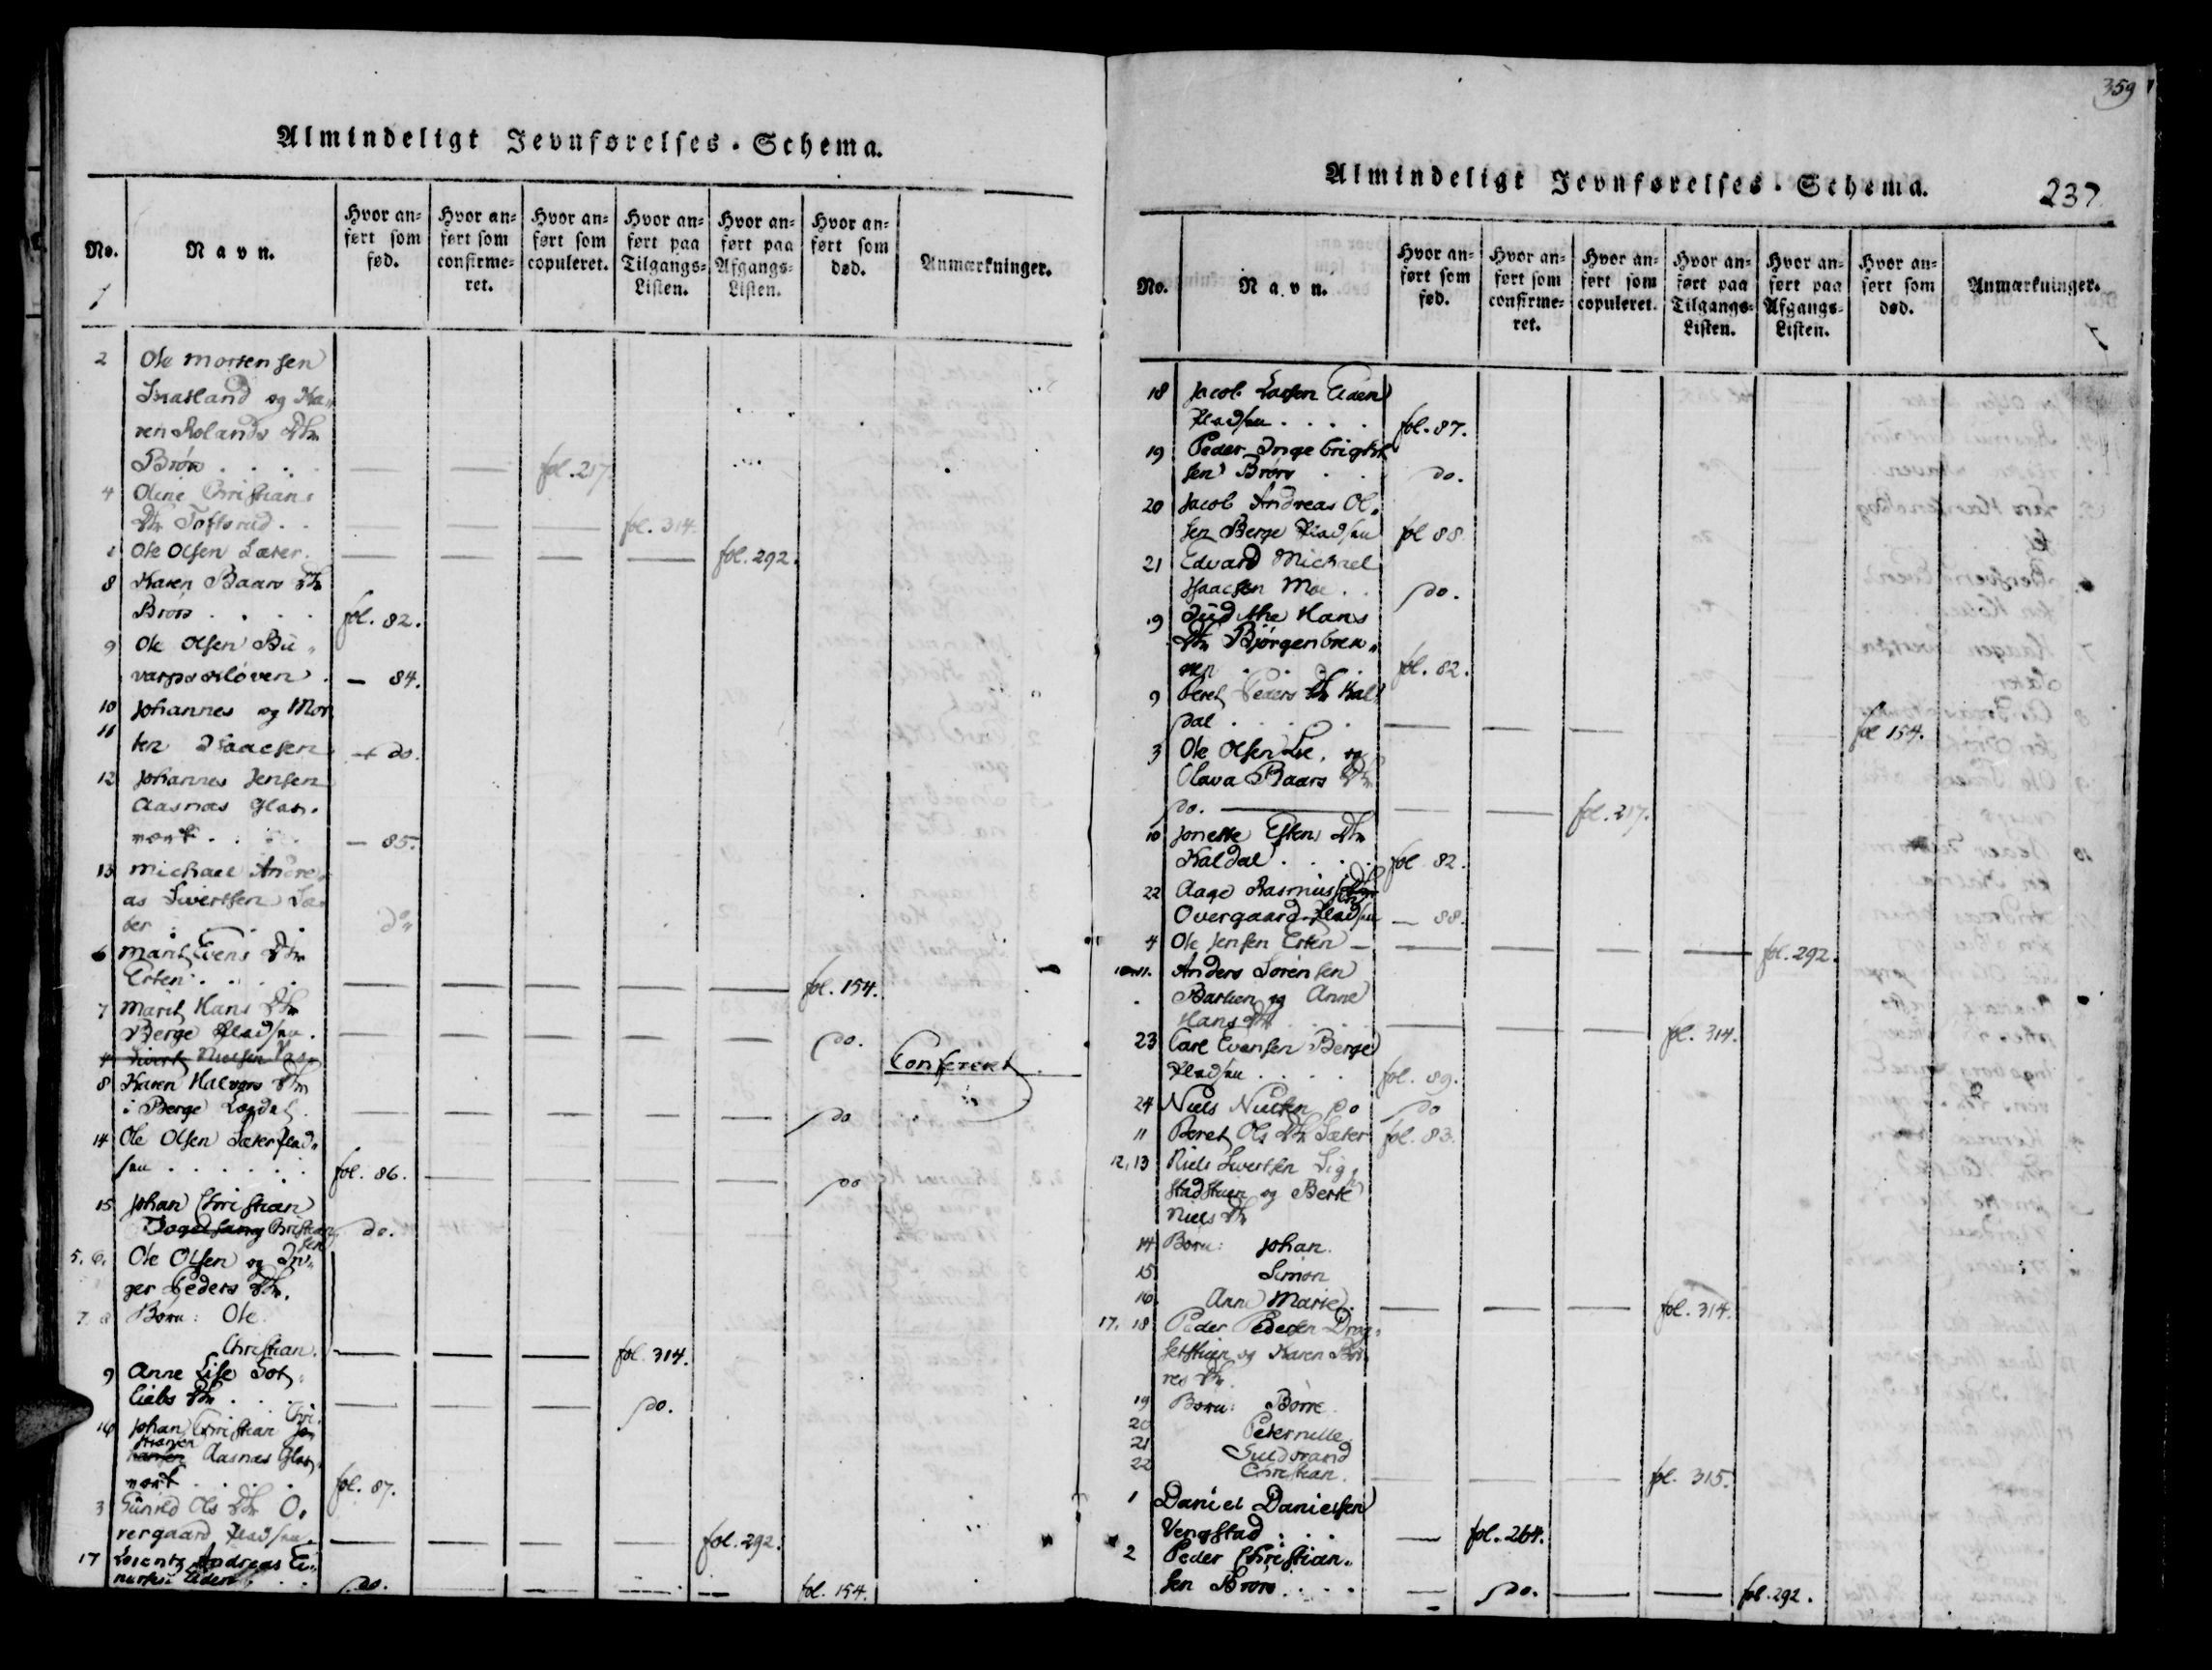 Almindeligt Jevnførelses-Schema.
No.
Navn.
Hvor anført som fød.
Hvor anført som confirmeret.
Hvor anført som copuleret.
Hvor anført paa Tilgangs-Listen.
Hvor anført paa Afgangs-Listen.
Hvor anført som død.
Anmærkninger.
2 Ole Mortensen
og Ka„
ren Rolands Dtr
Brøn . . . . — — fol. 217
4 Oline Christians
Dtr Toftsrud . . — — — fol. 314.
Ole Olsen Sæter. — — — — fol. 292.
8 Karen Baars Dtr
Brørs . . . . fol. 82.
9 Ole Olsen Bu„
varpskløven . — 84.
10 Johannes og Mor
11 ten Isaacsen — do.
12 Johannes Jensen
Aasnæs Glas„
værk . . . . — 85.
13 Michael Andre„
as Sivertsen Sæ
ter . . . do
6 Marit Evens Dtr
Erten . . . . — — — — — fol. 154.
7 Marit Hans Dtr
Berge Pladsen . — — — — — do.
Sivert Nielsen
Confereret
8 Karen Halvors Dtr
i Berge — — — — — do
14 Ole Olsen Sæter Plad„
sen . . . . . . fol. 86. — — — — do
15 Johan Christian
Vogelsang Christian
sen do.
5. 6. Ole Olsen og In„
ger Peders Dtr.
7. 8 Børn: Ole
Christian. — — — fol. 314.
9 Anne Lise Got„
liebs Dtr . . . — — — do.
16 Johan Christian
Chri
stiansen
hansen Aasnæs Glas„
værk . . . . fol. 87.
3 Gunild Ols Dtr O„
vergaard Pladsen. — — — — fol. 292.
17 Lorentz Andreas Ei„
nersen Eiden . . do. — — — — fol. 154.
359
Almindeligt Jevnførelses-Schema.
237
No.
Navn.
Hvor anført som fød.
Hvor anført som confirmeret.
Hvor anført som copuleret.
Hvor anført paa Tilgangs-Listen.
Hvor anført paa Afgangs-Listen.
Hvor anført som død.
Anmærkninger.
18 Jacob Larsen Eiden
Pladsen . . . . fol. 87.
19 Peder Ingebrigt
sen Brørs . . do.
20 Jacob Andreas Ol„
sen Berge Pladsen fol 88.
21 Edvard Michael
Isaacsen Moe . . do.
9 Judithe Hans
Dtr Bjørgenbren„
nen . . . . fol. 82.
9 Beret Peders Dtr Kal
dal . . . . . — — — — — fol 154.
3 Ole Olsen Lie, og
Olava Baars Dtr
do. — — — fol. 217.
10 Jonette Estens Dtr
Kaldal . . . . fol. 82.
22 Aage Rasmus
Overgaard Pladsen — 88.
4 Ole Jensen Erten — — — — — fol. 292.
10. 11. Anders Sørensen
Barlien og Anne
Hans Dtr . . . . — — — fol. 314.
23 Carl Evensen Berge
Pladsen . . . . fol. 89.
24 Niels Nielsen do do
11 Beret Ols Dtr Sæter fol. 83.
12, 13 Niels Sivertsen Lig
stadstuen og Berte
Niels Dtr
14 Børn: Johan.
15 Simon
16. Anne Marie. — — — fol. 314.
17. 18 Peder Pedersen Drag„
setstuen og Karen Bør
res Dtr.
19 Børn: Børre.
20 Peternille
21 Guldbrand
22 Christian. — — — fol. 315.
1 Daniel Danielsen
Vengstad . . . — fol. 264.
2 Peder Christian„
sen Brørs . . . . — do. — — fol. 292.